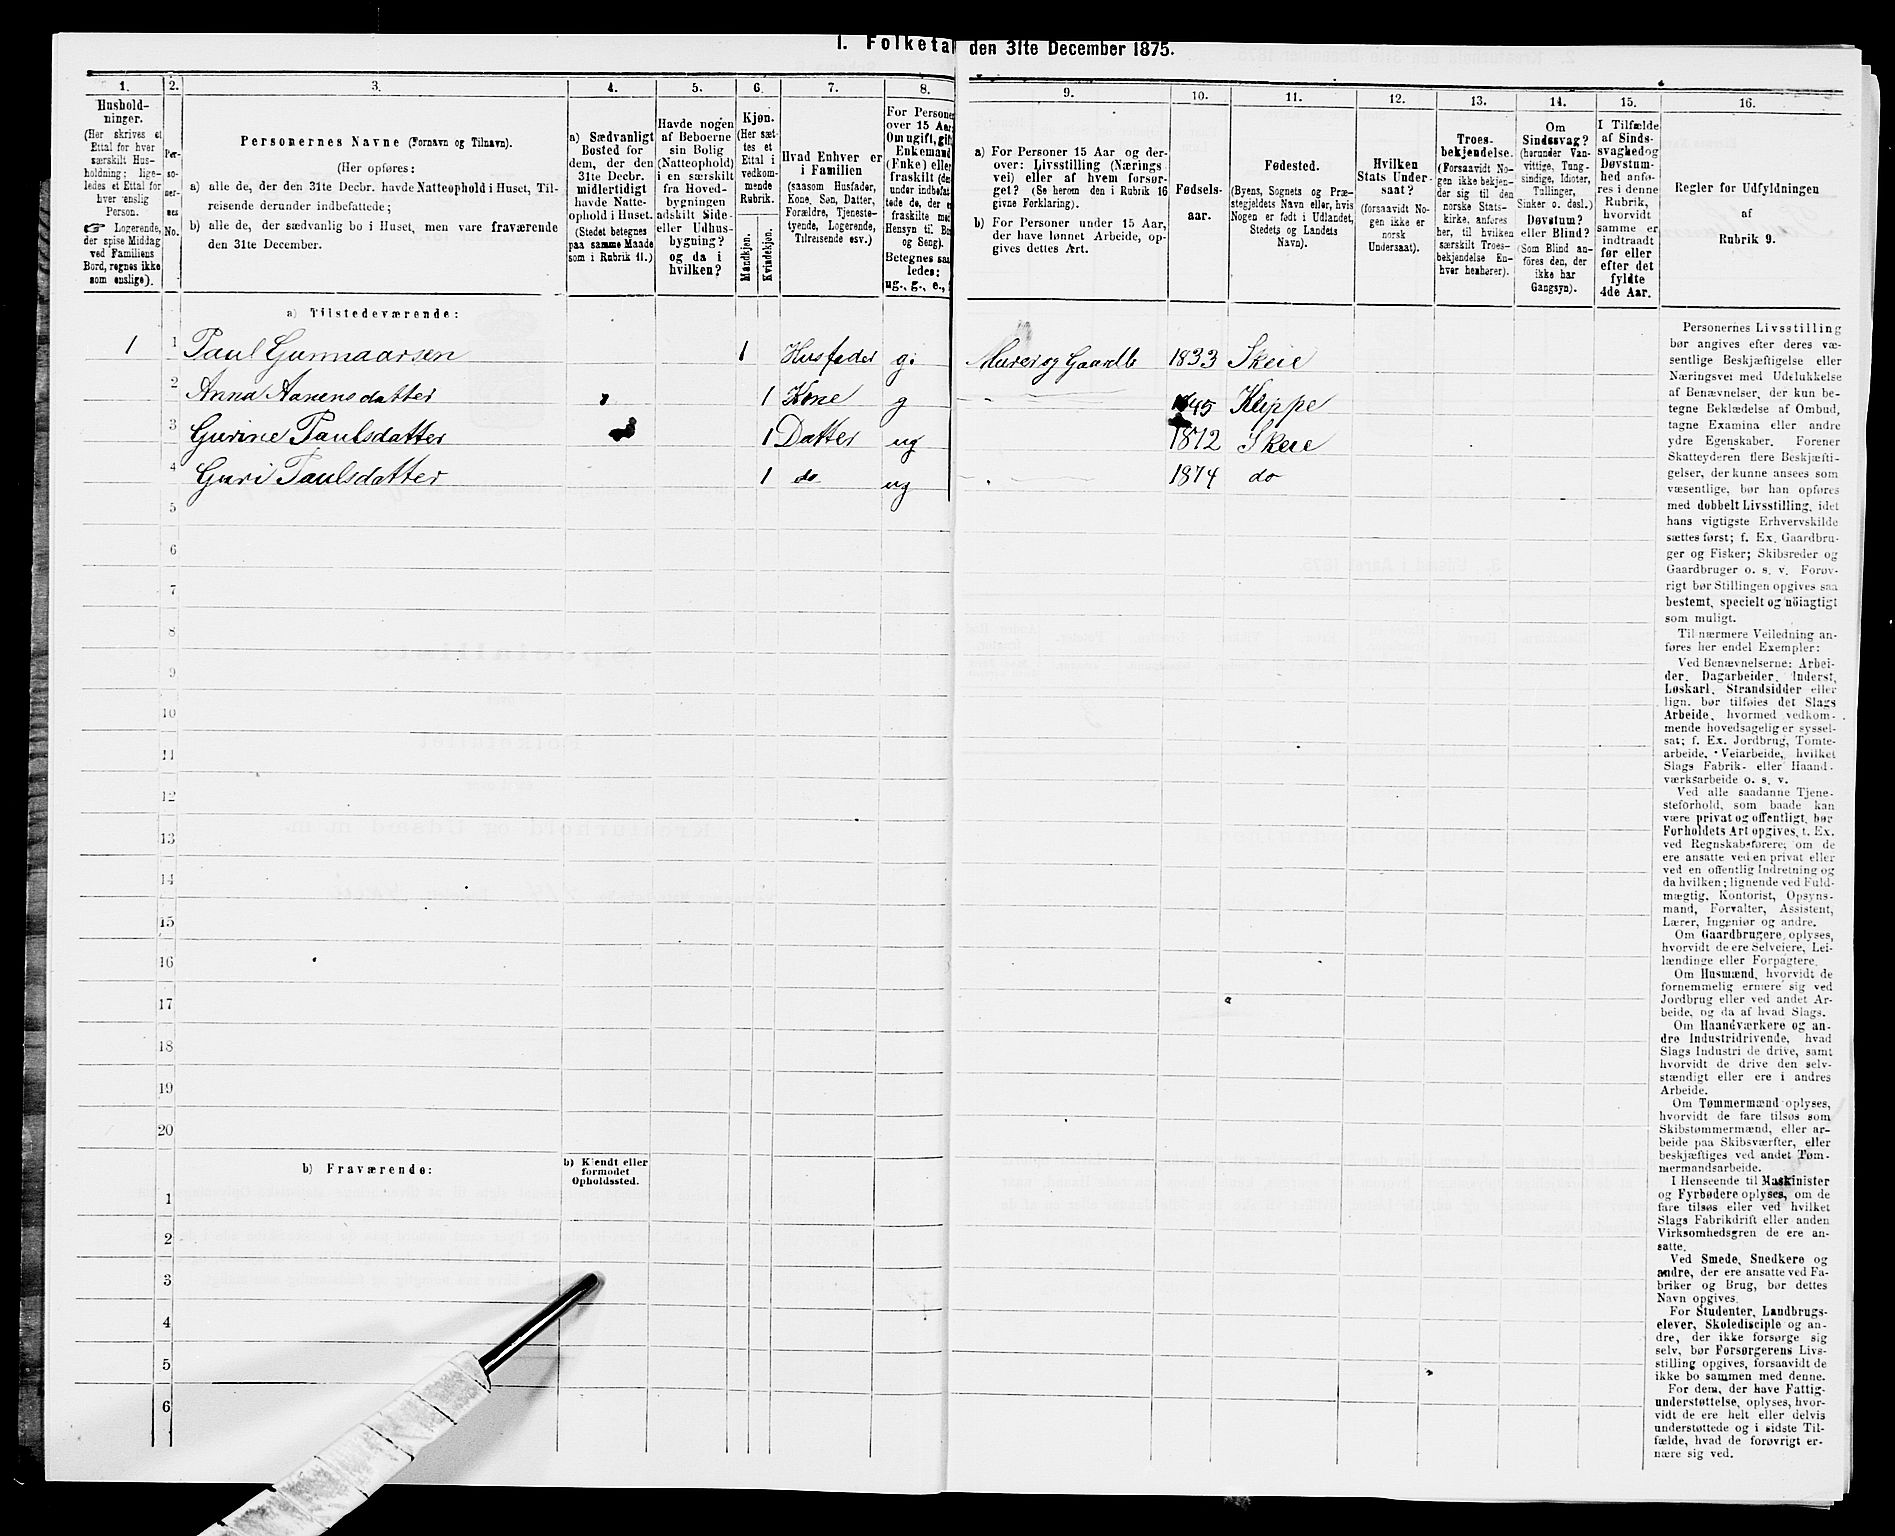 1. Folketal den 31te December 1875.
1.
Hushold-
ninger.
(Her skrives et
Ettal for hver
særskilt Hus-
holdning; lige-
ledes et Ettal for
hver enslig
Person.
☞ Logerende,
der spise Middag
ved Familiens
Bord, regnes ikke
som enslige).
2.
Per-
so-
ner-
nes
No.
3.
Personernes Navne (Fornavn og Tilnavn).
(Her opføres:
a) alle de, der den 31te Decbr. havde Natteophold i Huset, Til-
reisende derunder indbefattede;
b) alle de, der sædvanlig bo i Huset, men vare fraværende
den 31te December.
4.
a) Sædvanligt
Bosted for
dem, der den
31te Decbr.
midlertidigt
havde Natte-
ophold i Huset.
(Stedet betegnes
paa samme Maade
som i Rubrik 11.)
5.
Havde nogen
af Beboerne
sin Bolig
(Natteophold)
i en særskilt
fra Hoved-
bygningen
adskilt Side-
eller Udhus-
bygning?
og da i
hvilken?
6.
Kjøn.
(Her sæt-
tes et
Ettal i
vedkom-
mende
Rubrik.
Mandkjøn.
Kvindekjøn.
7.
Hvad Enhver er
i Familien
(saasom Husfader,
Kone, Søn, Datter,
Forældre, Tjeneste-
tyende, Logerende,
Tilreisende osv.)
8.
For Personer
over 15 Aar,
Om ugift, gift
Enkemand
(Enke) eller
fraskilt (de
under indbefat-
tede de, der e
fraskilte med
Hensyn til Bo
og Seng).
Betegnes saa
ledes:
ug., g., e.,
9.
a) For Personer 15 Aar og der-
over: Livsstilling (Nærings
vei) eller af hvem forsør-
get? (Se herom den i Rubrik 16
givne Forklaring).
b) For Personer under 15 Aar,
der have lønnet Arbeide, op-
gives dettes Art.
10.
Fødsels-
aar.
11.
Fødested.
(Byens, Sognets og Præ-
stegjeldets Navn eller, hvis
Nogen er født i Udlandet,
Stedets og Landets
Navn).
12.
Hvilken
Stats Under-
saat?
(forsaavidt No-
gen ikke er
norsk
Undersaat).
13.
Troes-
bekjendelse.
(Forsaavidt No-
gen ikke bekjen-
der sig til den
norske Stats-
kirke, anføres
her, til hvilken
særskilt Troes-
bekjendelse En-
hver henhører).
14.
Om
Sindssvag?
(herunder Van-
vittige, Tung-
sindige, Idioter,
Tullinger,
Sinker o. desl.)
Døvstum?
eller Blind?
(Som Blind an-
føres den, der
ikke har
Gangsyn).
15.
I Tilfælde
af Sinds-
svaghed og
Døvstum-
hed anfø-
res i denne
Rubrik,
hvorvidt
samme er
indtraadt
før eller
efter det
fyldte
4de Aar.
16.
Regler for Udfyldningen
af
Rubrik 9.
a) Tilstedeværende:
1 1 Paul Gunnaarsen 1 Husfader g. Murer og Gaardb 1833 Skeie
2 Anna Aanensdatter 1 Kone g 45 Kleppe
3 Gurine Paulsdatter 1 Datter ug 1872 Skeie
4 Guri Paulsdatter 1 do ug 1874 do
5
6
7
8
9
10
11
12
13
14
15
16
17
18
19
20
b) Fraværende:
b) Kjendt eller
formodet
Opholdssted.
1
2
3
4
5
6
Personernes Livsstilling
bør angives efter deres væ-
sentlige Beskjæftigelse eller
Næringsvei med Udelukkelse
af Benævnelser, der kun be-
tegne Beklædelse af Ombud,
tagne Examina eller andre
ydre Egenskaber. Forener
Skatteyderen flere Beskjæfti-
gelser, der kunne ansees som
væsentlige, bør han opføres
med dobbelt Livsstilling, idet
hans vigtigste Erhvervskilde
sættes først; f. Ex. Gaardbru-
ger og Fisker; Skibsreder og
Gaardbruger o. s. v. Forøv-
rigt bør Stillingen opgives saa
bestemt, specielt og nöiagtigt
som muligt.
Til nærmere Veiledning an-
føres her endel Exempler:
Ved Benævnelserne: Arbei-
der, Dagarbeider, Inderst,
Løskarl, Strandsidder eller
lign. bør tilføies det Slags
Arbeide, hvormed vedkom-
mende hovedsagelig er syssel-
sat; f. Ex. Jordbrug, Tomte-
arbeide, Veiarbeide, hvilket
Slags Fabrik- eller Haand-
værksarbeide o. s. v.
Ved alle saadanne Tjene-
steforhold, som baade kan
være privat og offentligt, bør
Forholdets Art opgives, t. Ex.
ved Regnskabsførere; om de
ere ansatte ved en privat eller
ved en offentlig Indretning og
da hvilken; lignende ved Fuld-
mægtig, Kontorist, Opsyns-
mand, Forvalter, Assistent,
Lærer, Ingeniør og andre.
Om Gaardbrugere oplyses,
hvorvidt de ere Selveiere, Lei-
lændinge eller Forpagtere.
Om Husmænd, hvorvidt de
fornemmelig ernære sig ved
Jordbrug eller ved andet Ar-
beide, og da af hvad Slags.
Om Haandværkere og an-
dre Industridrivende, hvad
Slags Industri de drive, samt
hvorvidt de drive den selv-
stændigt eller ere i andres
Arbeide.
Om Tømmermænd oplyses,
hvorvidt de fare tilsøs som
Skibstømmermænd, eller ar-
beide paa Skibsværfter, eller
beskjæftiges ved andet Tøm-
mermandsarbeide.
I Henseende til Maskinister
og Fyrbødere oplyses, om de
fare tilsøs eller ved hvilket
Slags Fabrikdrift eller anden
Virksomhedsgren de ere an-
satte.
Ved Smede, Snedkere og
andre, der ere ansatte ved Fa-
briker og Brug, bør dettes
Navn opgives.
For Studenter, Landbrugs-
elever, Skoledisciple og an-
dre, der ikke forsørge sig
selv, bør Forsørgerens Livs-
stilling opgives, forsaavidt de
ikke bo sammen med denne.
For dem, der have Fattig-
understøttelse, oplyses, hvor-
vidt de ere helt eller delvis
understøttede og i sidste Til-
fælde, hvad de forøvrigt er-
nære sig ved.